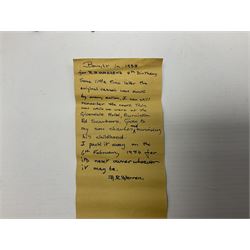 Bought in 1954
for R.D. WARREN'S 4th Birthday
Some little time later the
original canvas was made
by many action, I can well
remember the
was while we were at the
Glenside Hotel, Burniston
Rd Scarborough. Given to
my son Charles, surviving
his childhood.
I pack it away on the
6th February 1994 for
its next owner whoever
it may be.
R Warren